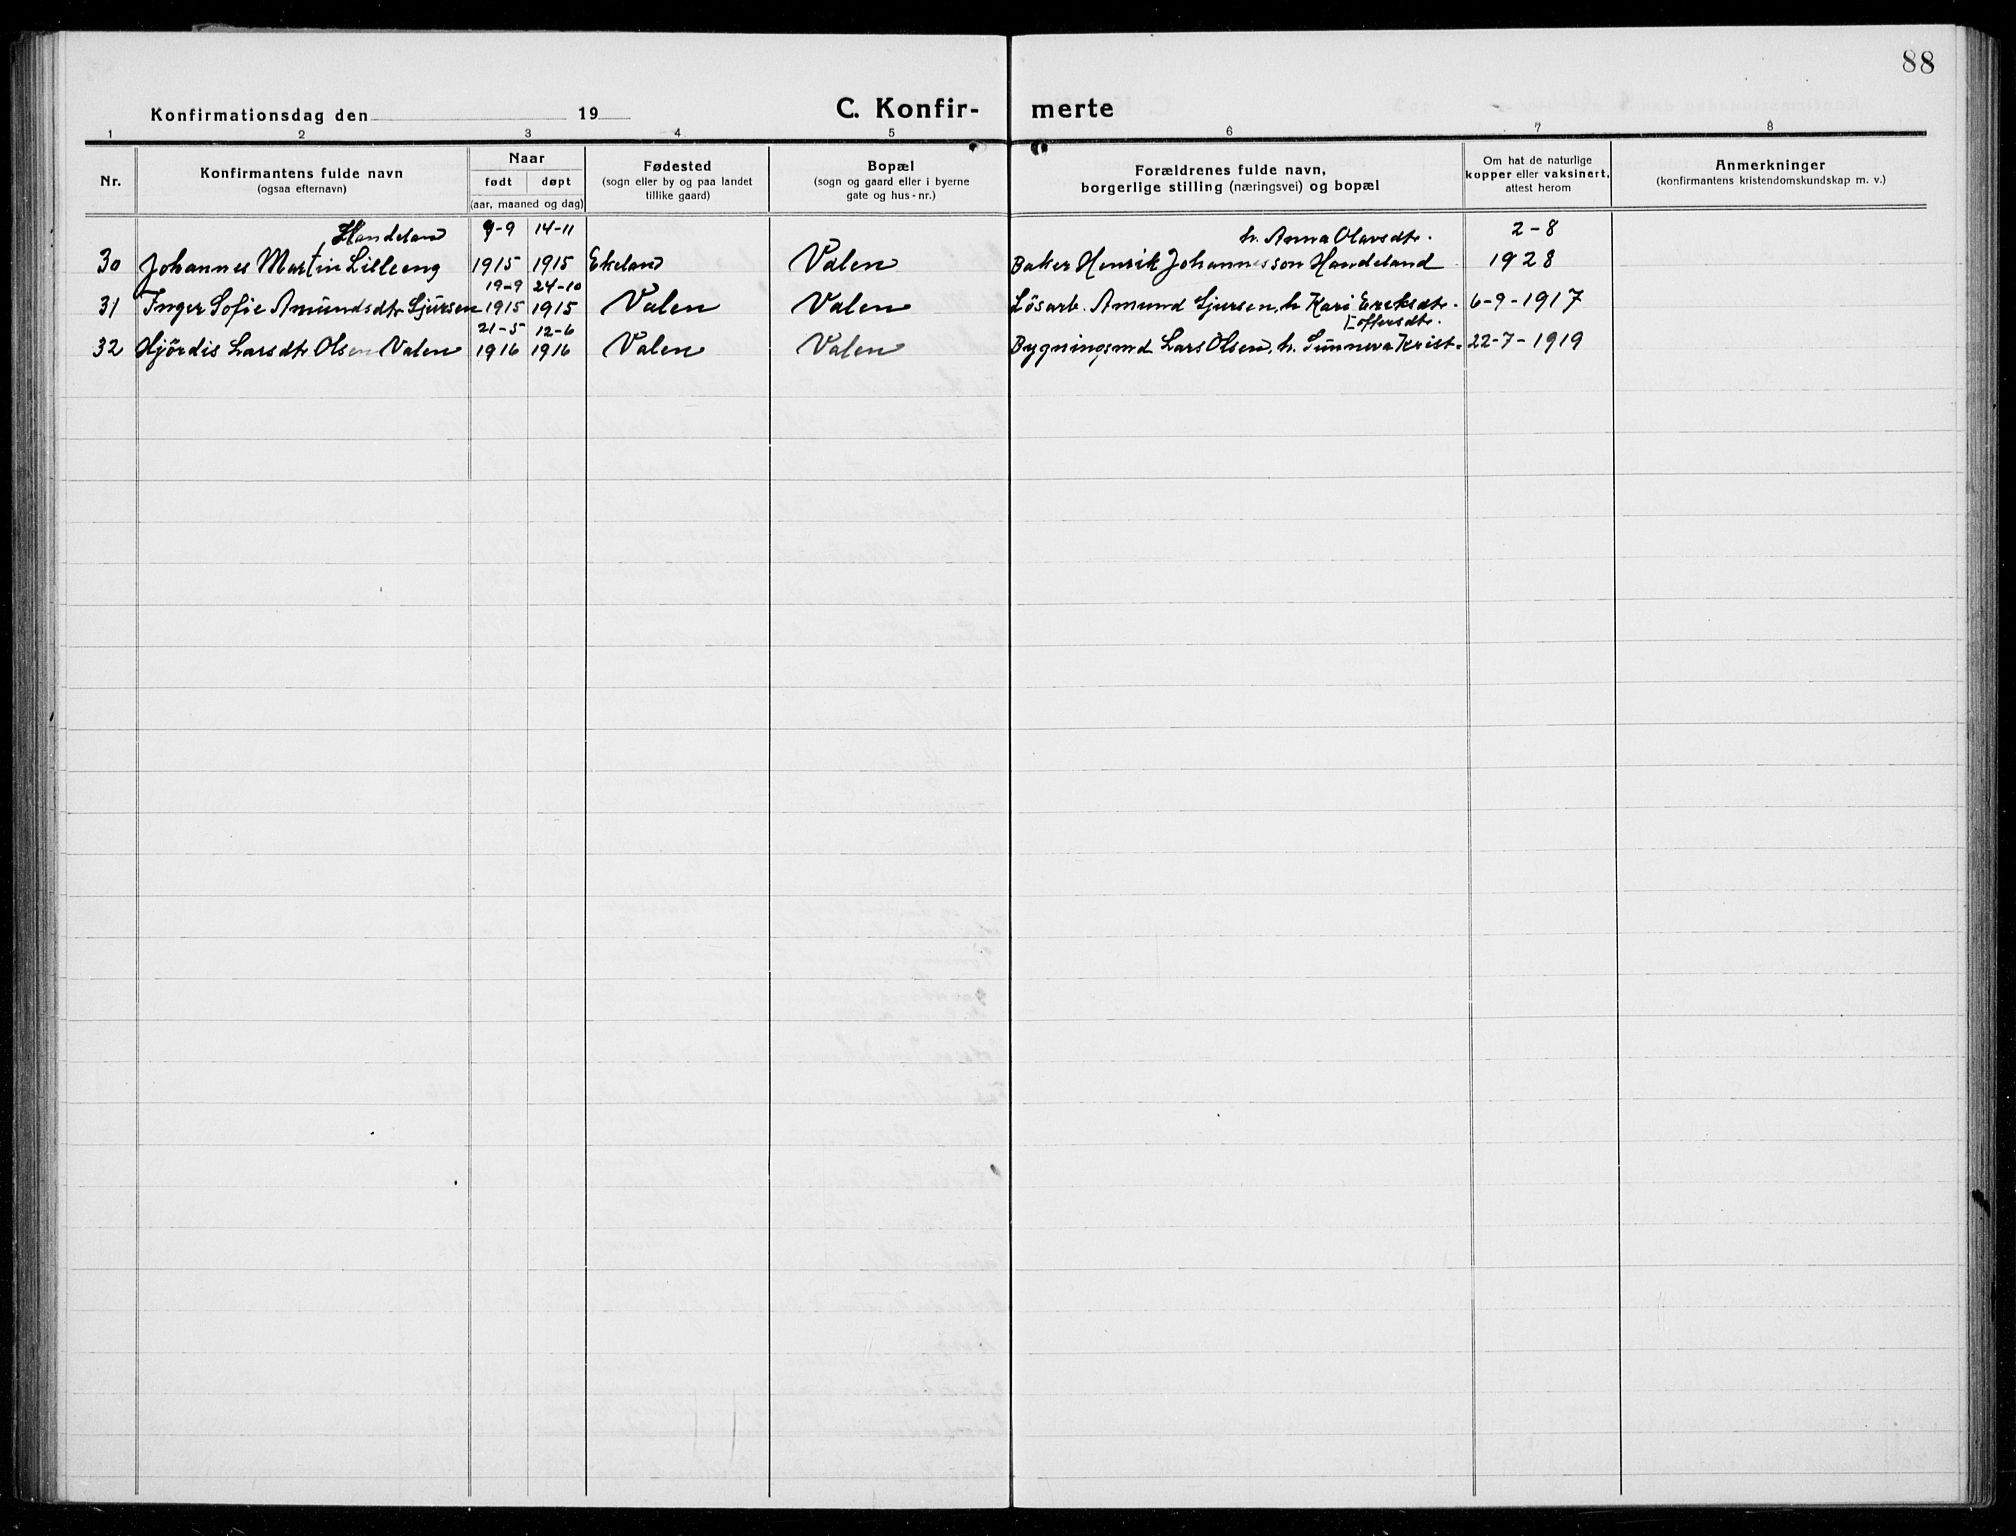 88
Konfirmationsdag den 19
C. Konfir- merte
1 2 3 4 5 6 7 8
Nr.
Konfirmantens fulde navn
(ogsaa efternavn)
Naar
født døpt
(aar, maaned og dag)
Fødested
(sogn eller by og paa landet
tillike gaard)
Bopæl
(sogn og gaard eller i byerne
gate og hus-nr.)
Forældrenes fulde navn,
borgerlige stilling (næringsvei) og bopæl
Om hat de naturlige
kopper eller vaksinert,
attest herom
Anmerkninger
(konfirmantens kristendomskundskap m. v.)
Handeland 9-9 14-11 h. Anna Olavsdtr. 2-8
30 Johannes Martin Lilleeng 1915 1915 Ekeland Valen Baker Henrik Johannesson Handeland 1928
19-9 24-10
31 Inger Sofie Amundsdtr Sjursen 1915 1915 Valen Valen Løsarb. Amund Sjursen, h Kari Eriksdtr. 6-9-1917
21-5 12-6 [offersdtr.
32 Hjördis Larsdtr Olsen Valen 1916 1916 Valen Valen Bygningsmd Lars Olsen, h. Sunneva Krist- 22-7-1919